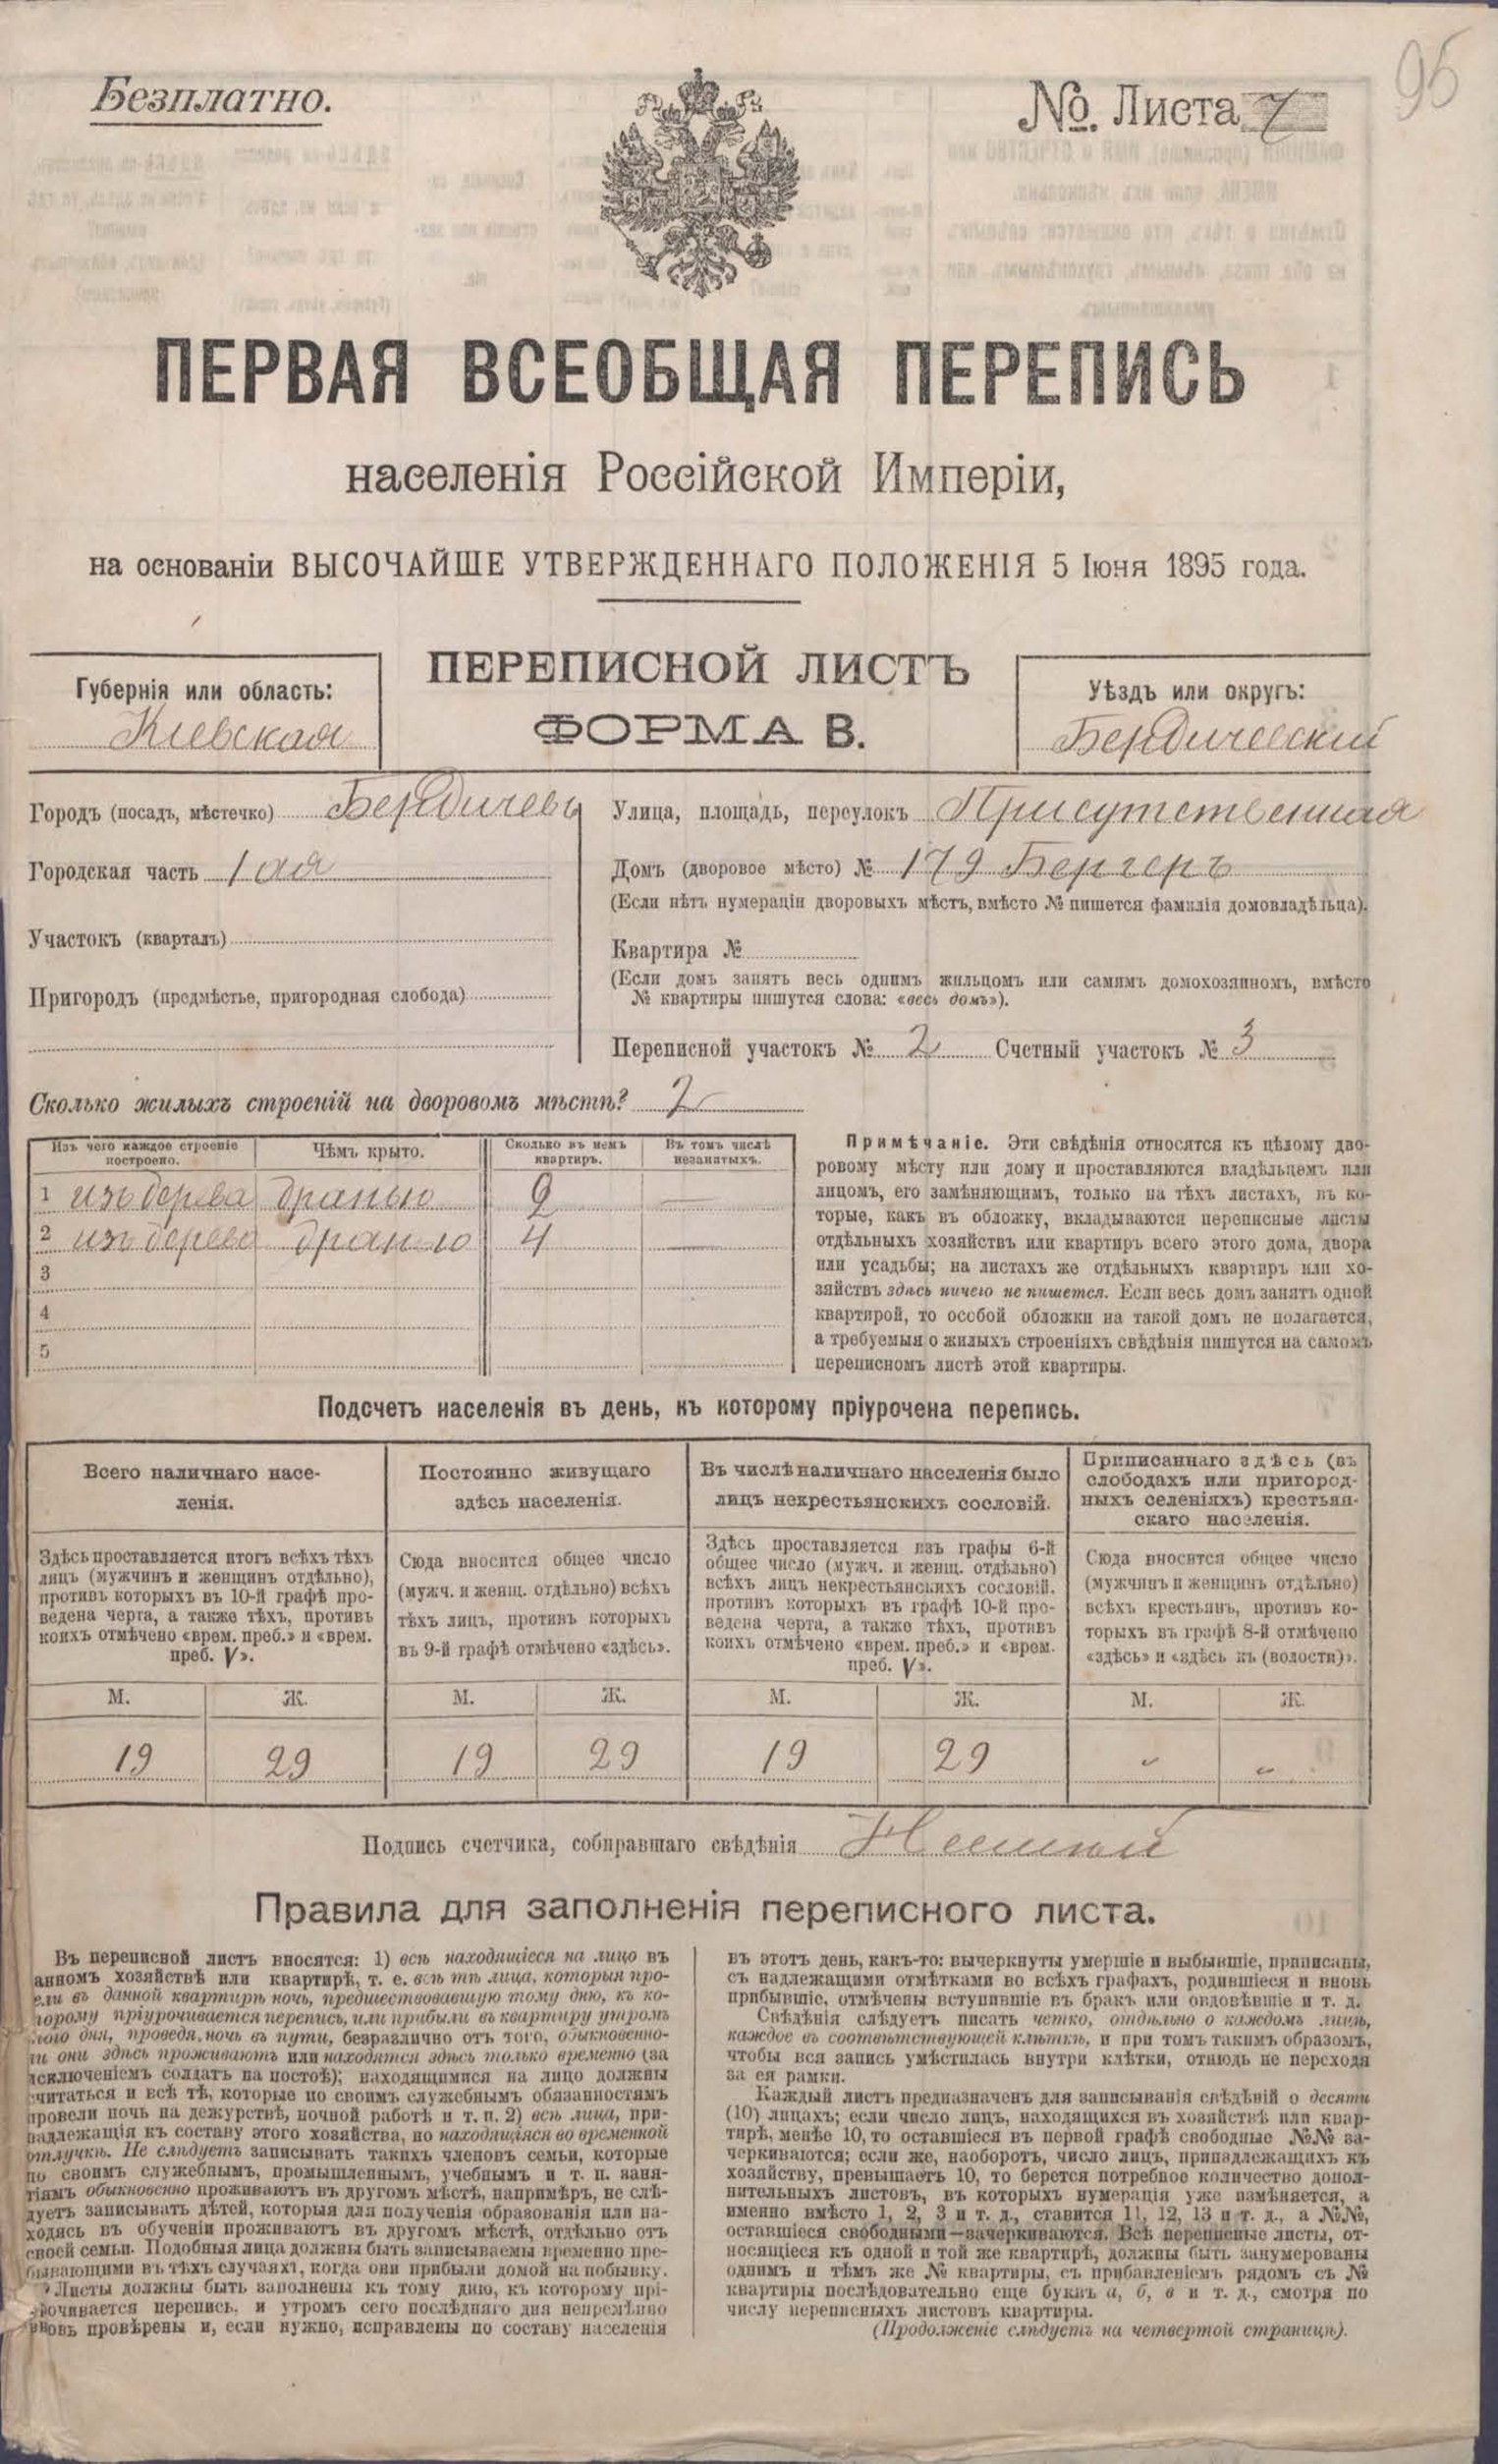 95
Безплатно.
№. Листа 7
ПЕРВАЯ ВСЕОБЩАЯ ПЕРЕПИСЬ
населенія Россійской Имперіи,
на основаніи ВЫСОЧАЙШЕ УТВЕРЖДЕННАГО ПОЛОЖЕНІЯ 5 Іюня 1895 года.
ПЕРЕПИСНОЙ ЛИСТЪ
ФОРМА В.
Губернія или область:
Кіевская
Уѣздъ или округъ:
Бердичевский
Городъ (посадъ, мѣстечко) Бердичевъ
Городская часть 1 ая
Участокъ (кварталъ)
Пригородъ (предмѣстье, пригородная слобода)
Улица, площадь, переулокъ Присутственная
Домъ (дворовое мѣсто) № 179 Бергеръ
(Если нѣтъ нумераціи дворовыхъ мѣстъ, вмѣсто № пишется фамилія домовладѣльца).
Квартира №
(Если домъ занятъ весь однимъ жильцомъ или самимъ домохозяиномъ, вмѣсто
№ квартиры пишутся слова: «весь домъ»).
Переписной участокъ № 2 Счетный участокъ № 3
Сколько жилыхъ строеній на дворовомъ мѣстѣ? 2
Изъ чего каждое строеніе построено. Чѣмъ крыто. Сколько въ немъ квартиръ. Въ томъ числѣ незанятыхъ.
1 изъ дерева дранью 9 —
2 изъ дерева дранью 4 —
3
4
5
Примѣчаніе. Эти свѣдѣнія относятся къ цѣлому дво-
ровому мѣсту или дому и проставляются владѣльцемъ или
лицомъ, его замѣняющимъ, только на тѣхъ листахъ, въ ко-
торые, какъ въ обложку, вкладываются переписные листы
отдѣльныхъ хозяйствъ или квартиръ всего этого дома, двора
или усадьбы; на листахъ же отдѣльныхъ квартиръ или хо-
зяйствъ здѣсь ничего не пишется. Если весь домъ занятъ одной
квартирой, то особой обложки на такой домъ не полагается,
а требуемыя о жилыхъ строеніяхъ свѣдѣнія пишутся на самомъ
переписномъ листѣ этой квартиры.
Подсчетъ населенія въ день, къ которому пріурочена перепись.
Всего наличнаго насе-
ленія.
Здѣсь проставляется итогъ всѣхъ тѣхъ
лицъ (мужчинъ и женщинъ отдѣльно),
противъ которыхъ въ 10-й графѣ про-
ведена черта, а также тѣхъ, противъ
коихъ отмѣчено «врем. преб.» и «врем.
преб. V».
М. Ж.
19 29
Постоянно живущаго
здѣсь населенія.
Сюда вносится общее число
(мужч. и женщ. отдѣльно) всѣхъ
тѣхъ лицъ, противъ которыхъ
въ 9-й графѣ отмѣчено «здѣсь».
М. Ж.
19 29
Въ числѣ наличнаго населенія было
лицъ некрестьянскихъ сословій.
Здѣсь проставляется изъ графы 6-й
общее число (мужч. и женщ. отдѣльно)
всѣхъ лицъ некрестьянскихъ сословій,
противъ которыхъ въ графѣ 10-й про-
ведена черта, а также тѣхъ, противъ
коихъ отмѣчено «врем. преб.» и «врем.
преб. V».
М. Ж.
19 29
Приписаннаго здѣсь (въ
слободахъ или пригород-
ныхъ селеніяхъ) крестьян-
скаго населенія.
Сюда вносится общее число
(мужчинъ и женщинъ отдѣльно)
всѣхъ крестьянъ, противъ ко-
торыхъ въ графѣ 8-й отмѣчено
«здѣсь» и «здѣсь къ (волости)».
М. Ж.
Подпись счетчика, собиравшаго свѣдѣнія
Правила для заполненія переписного листа.
Въ переписной листъ вносятся: 1) всѣ находящіеся на лицо въ
анномъ хозяйствѣ или квартирѣ, т. е. всѣ тѣ лица, которыя про-
ели въ данной квартирѣ ночь, предшествовавшую тому дню, къ ко-
торому пріурочивается перепись, или прибыли въ квартиру утромъ
того дня, проведя ночь въ пути, безразлично отъ того, обыкновенно-
ли они здѣсь проживаютъ или находятся здѣсь только временно (за
исключеніемъ солдатъ на постоѣ); находящимися на лицо должны
считаться и всѣ тѣ, которые по своимъ служебнымъ обязанностямъ
провели ночь на дежурствѣ, ночной работѣ и т. п. 2) всѣ лица, при-
надлежащія къ составу этого хозяйства, но находящіяся во временной
отлучкѣ. Не слѣдуетъ записывать такихъ членовъ семьи, которые
по своимъ служебнымъ, промышленнымъ, учебнымъ и т. п. заня-
тіямъ обыкновенно проживаютъ въ другомъ мѣстѣ, напримѣръ, не слѣ-
дуетъ записывать дѣтей, которыя для полученія образованія или на-
ходясь въ обученіи проживаютъ въ другомъ мѣстѣ, отдѣльно отъ
своей семьи. Подобныя лица должны быть записываемы временно пре-
бывающими въ тѣхъ случаяхъ, когда они прибыли домой на побывку.
Листы должны быть заполнены къ тому дню, къ которому прі-
урочивается перепись, и утромъ сего послѣдняго дня непремѣнно
вновь провѣрены и, если нужно, исправлены по составу населенія
въ этотъ день, какъ-то: вычеркнуты умершіе и выбывшіе, приписаны,
съ надлежащими отмѣтками во всѣхъ графахъ, родившіеся и вновь
прибывшіе, отмѣчены вступившіе въ бракъ или овдовѣвшіе и т. д.
Свѣдѣнія слѣдуетъ писать четко, отдѣльно о каждомъ лицѣ,
каждое въ соотвѣтствующей клѣткѣ, и при томъ такимъ образомъ,
чтобы вся запись умѣстилась внутри клѣтки, отнюдь не переходя
за ея рамки.
Каждый листъ предназначенъ для записыванія свѣдѣній о десяти
(10) лицахъ; если число лицъ, находящихся въ хозяйствѣ или квар-
тирѣ, менѣе 10, то оставшіеся въ первой графѣ свободные №№ за-
черкиваются; если же, наоборотъ, число лицъ, принадлежащихъ къ
хозяйству, превышаетъ 10, то берется потребное количество допол-
нительныхъ листовъ, въ которыхъ нумерація уже измѣняется, а
именно вмѣсто 1, 2, 3 и т. д., ставится 11, 12, 13 и т. д., а №№,
оставшіеся свободными—зачеркиваются. Всѣ переписные листы, от-
носящіеся къ одной и той же квартирѣ, должны быть занумерованы
однимъ и тѣмъ же № квартиры, съ прибавленіемъ рядомъ съ №
квартиры послѣдовательно еще буквъ а, б, в и т. д., смотря по
числу переписныхъ листовъ квартиры.
(Продолженіе слѣдуетъ на четвертой страницѣ).